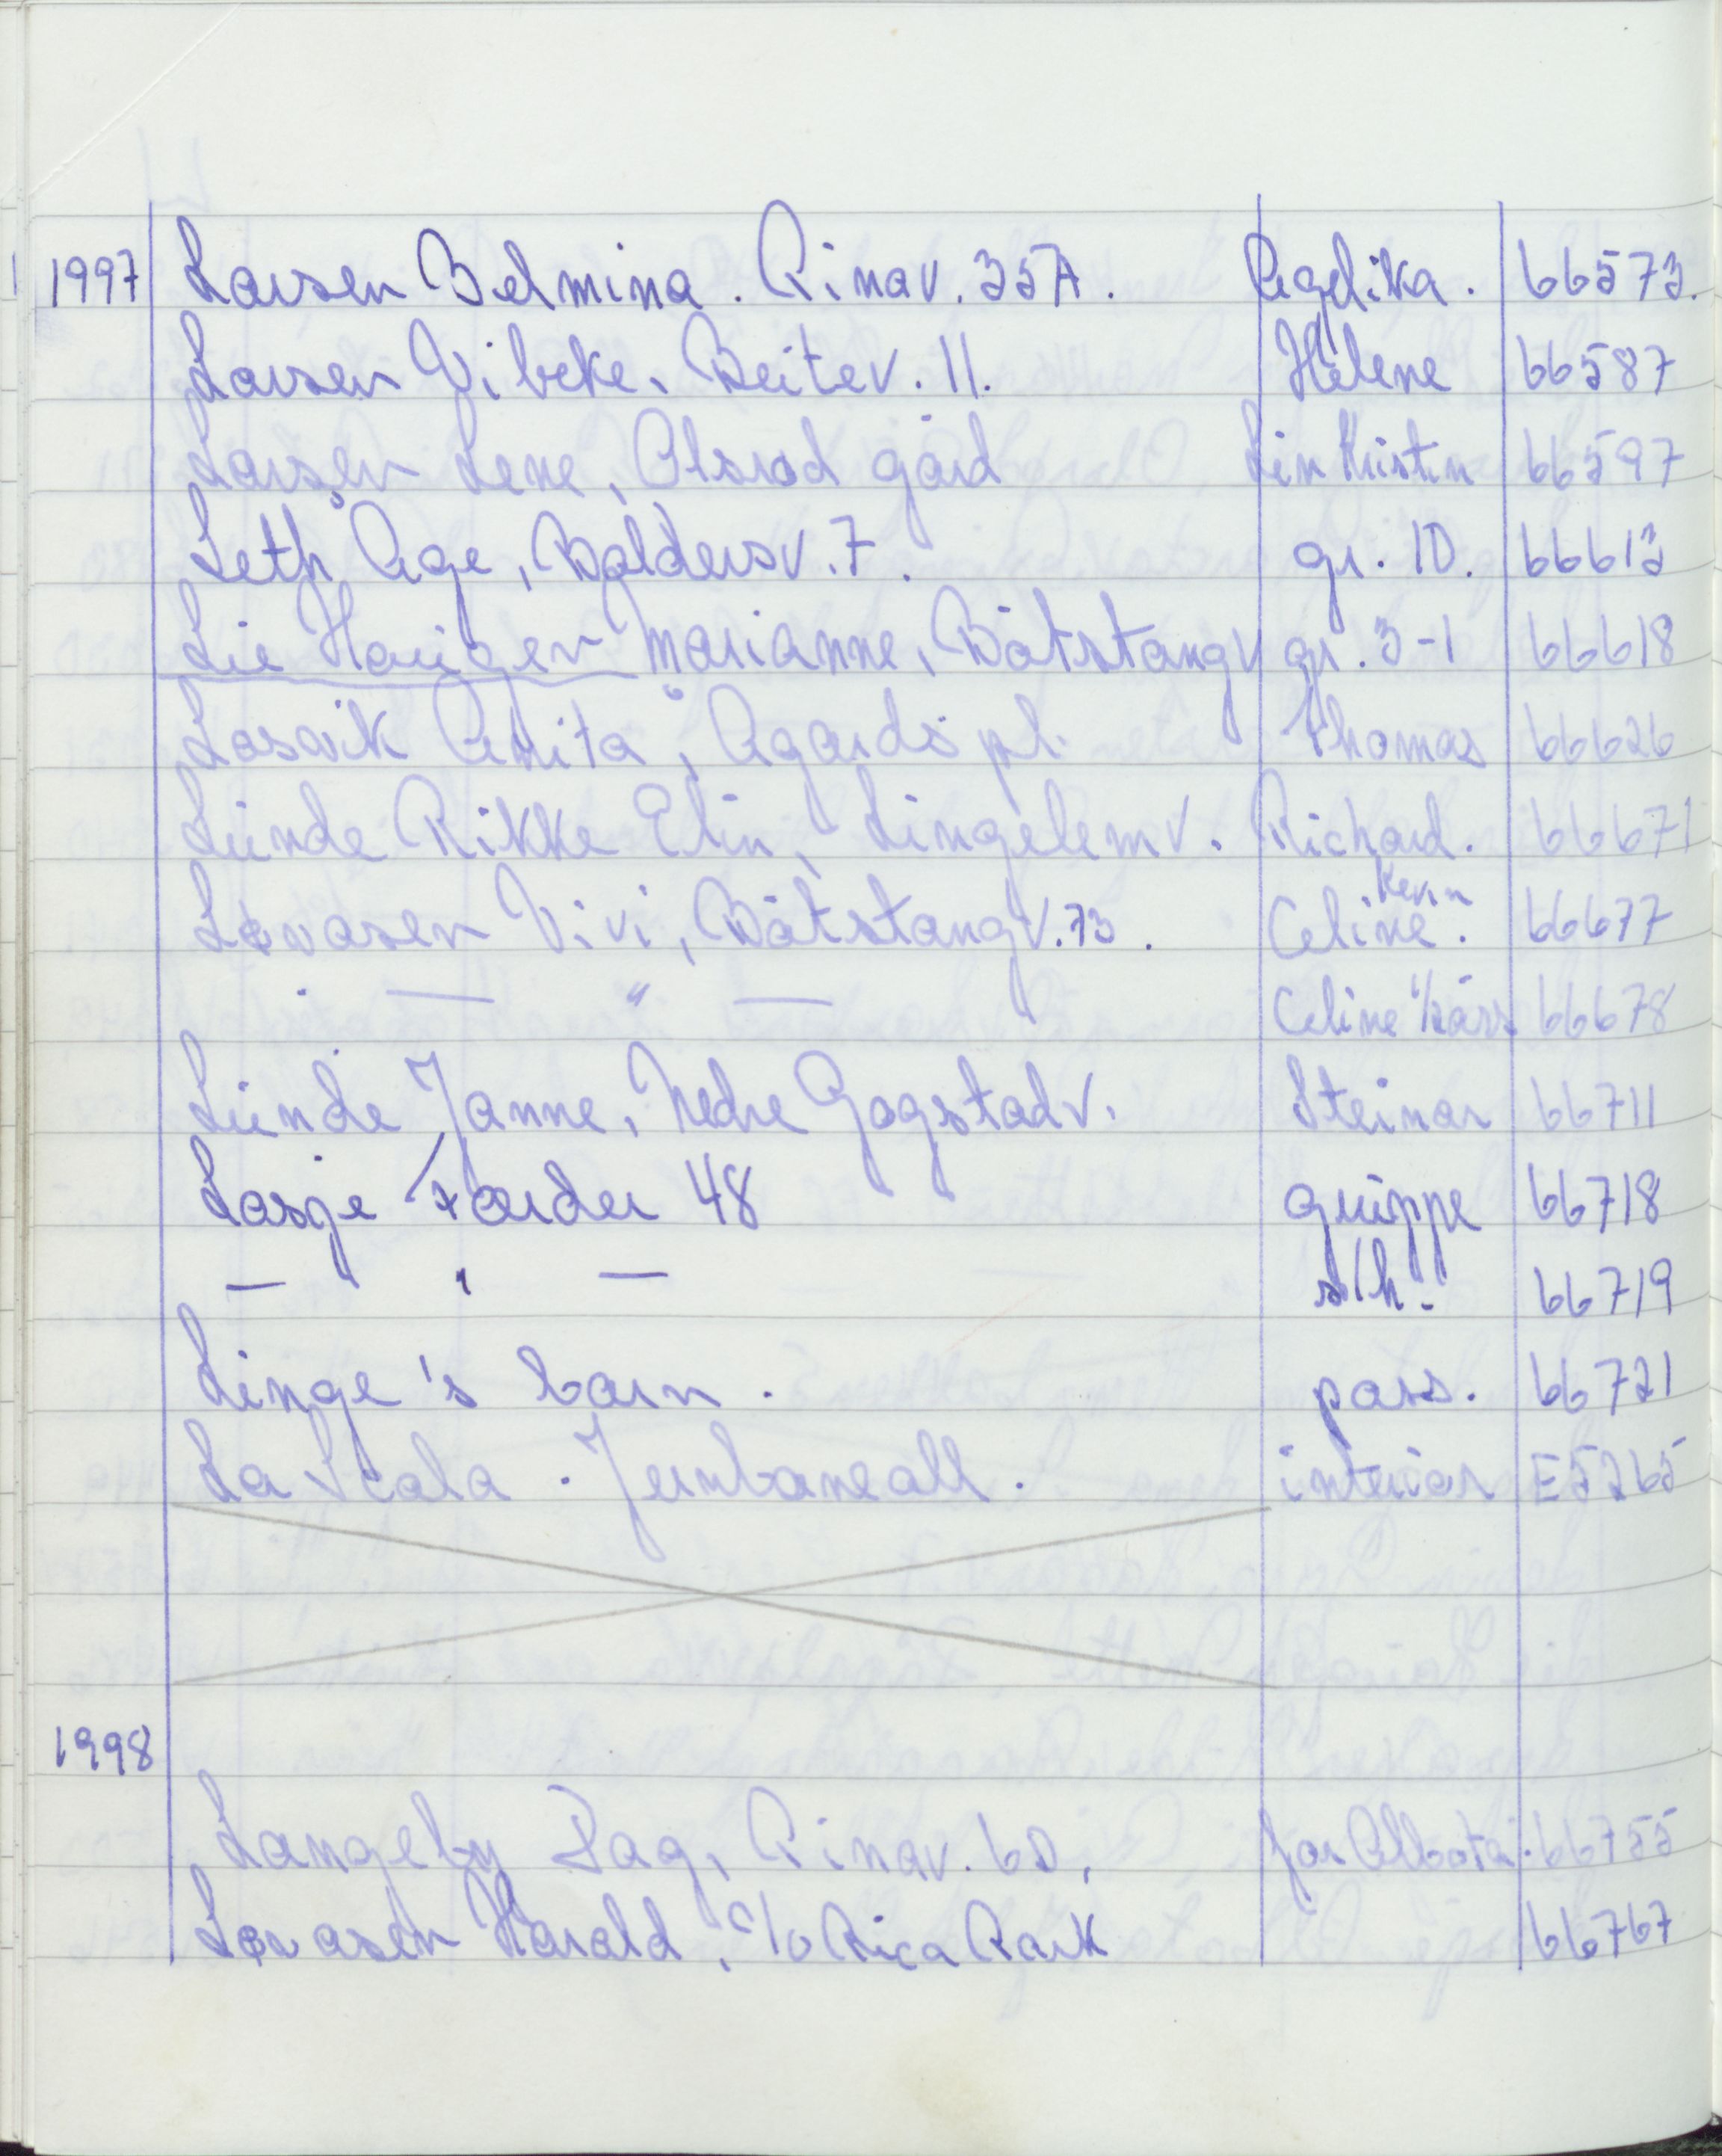 1997 Larsen Belmina. Rinav. 35A. Agelika. 66573.
Larsen Vibeke, Beitev. 11. Helene 66587
Larsen Lene, Olsrød gård Lin Kristin 66597
Leth Åge, Baldersv. 7. gr. 10. 66613
Lie Haugen Marianne, Båtstangv gr. 3-1 66618
Løsvik Anita, Agårds pl. Thomas 66626
Lunde Rikke Elin, Lingelemv. Richard. 66671
Kevin
Løvåsen Vivi, Båtstangv. 73. Celine. 66677
— " — Celine 66678
Lunde Janne, Nedre Gogstadv. Steinar 66711
Losje Færder 48 gruppe 66718
— " — s/h. 66719
Linge's barn. pass. 66721
La Scala. Jernbaneall. interiør E5265
1998
Langeby Dag, Rinav. 60, 66755
Løvåsen Harald, c/o Rica Park 66767